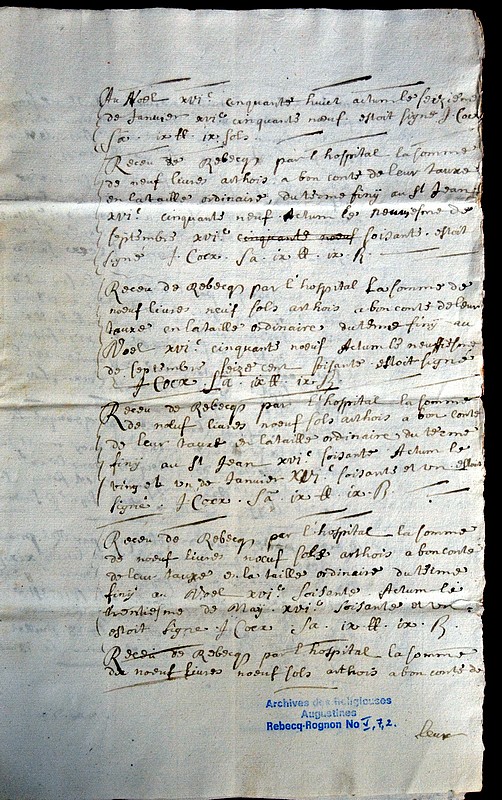 Au Noel xvi.c cinquante huict actum le seizieme
de Janvier xvi.c cinquante nœuf estoit signe J Cocx
Sa. ix ll ix sols.
Receu de Rebecq par l'hospital la somme
de neuf livres arthois a bon conte de leur taure
en la taille ordinaire, du terme finy au St Jean
xvi.c cinquante neuf Actum le neuviesme de
septembre xvi.c cinquante nœuf soisante. estoit
signe J Cocx. Sa. ix ll. ix. ß.
Receu de Rebecq par l'hospital La somme de
nœuf livres neuf sols arthois a bon conte de leur
taure en la taille ordinaire du terme finy au
Noel xvi.c cinquante nœuf Actum le neufiesme
de septembre seize cent soisante estoit signe
J Cocx Sa. ix ll. ix. ß
Receu de Rebecq par l'hospital la somme
de nœuf livres nœuf sols arthois a bon conte
de leur taure en la taille ordinaire du terme
finy au St Jean xvi.c soisante Actum le
vingt un de Janvier xvi.c soisante et un estoit
signe. J Cocx. Sa. ix. ll. ix. ß.
Receu de Rebecq par l'hospital la somme
de nœuf livres nœuf sols arthois a bon conte
de leur taure en la taille ordinaire du terme
finy au Noel xvi.c soisante. Actum le
trentiesme de May. xvi.c soisante et un
estoit signe J Cocx Sa. ix. ll. ix. ß.
Receu de Rebecq par l'hospital la somme
de nœuf livres nœuf sols arthois a bon conte de
Archives des Religieuses
Augustines
Rebecq-Rognon No V, 7, 2.
leur